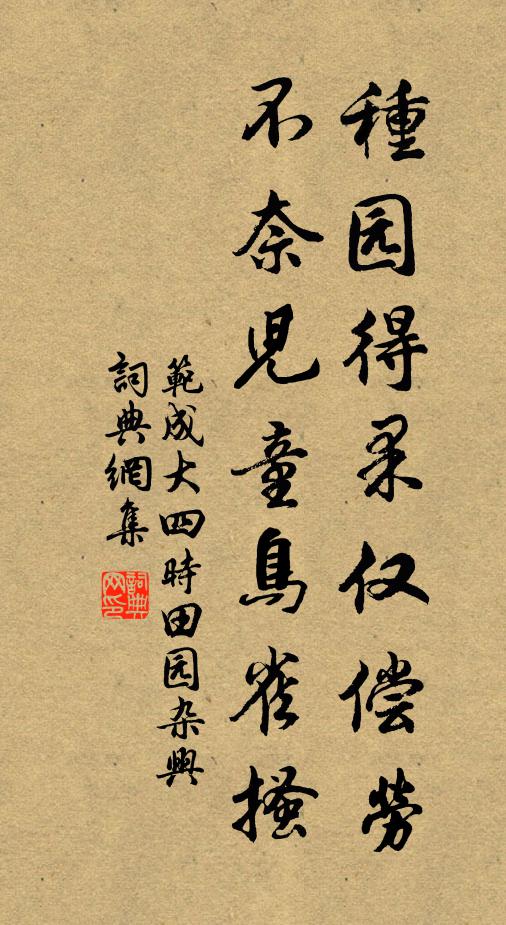 種园得果仅偿勞
不奈兒童鳥雀搔
範成大四時田园杂興
詞典網集
詞典网印